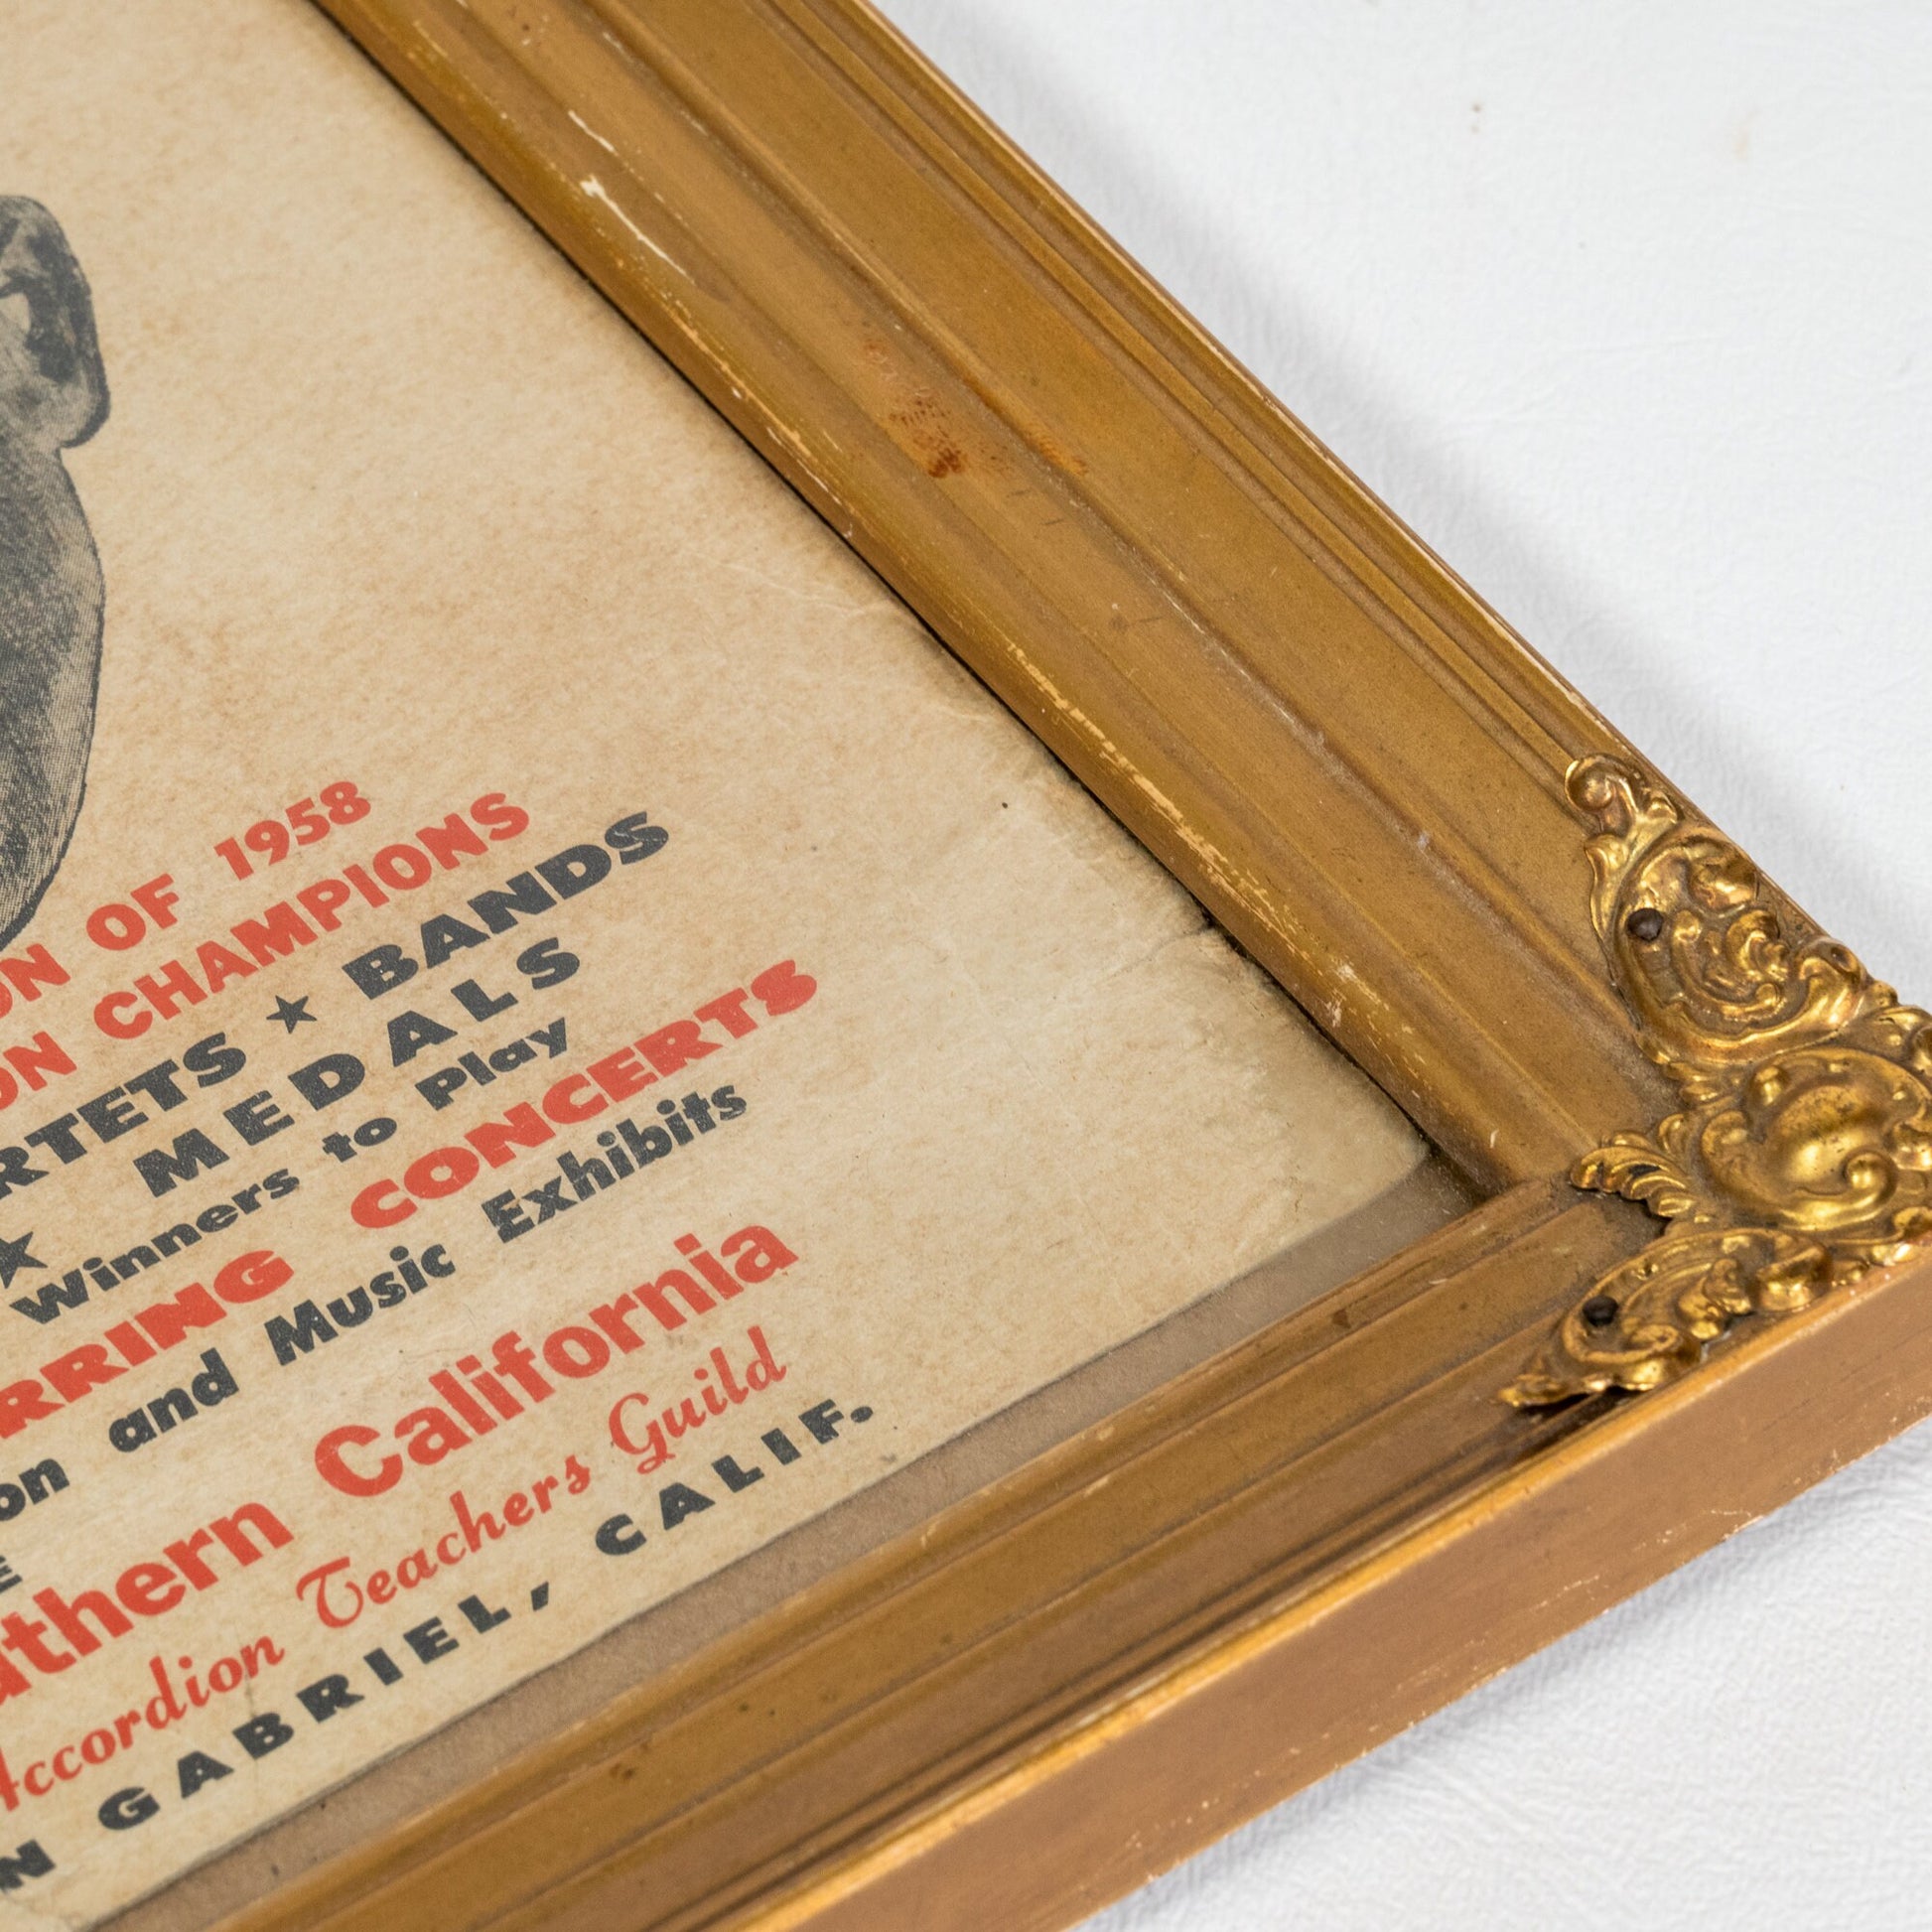 ON OF 1958
ON CHAMPIONS
RTETS ★ BANDS
★ MEDALS
Winners to Play
RRING CONCERTS
on and Music Exhibits
E
thern California
Accordion Teachers Guild
N GABRIEL, CALIF.